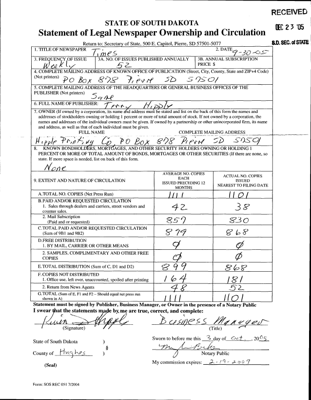 RECEIVED
DEC 23 '05
S.D. SEC. of STATE
STATE OF SOUTH DAKOTA
Statement of Legal Newspaper Ownership and Circulation
Return to: Secretary of State, 500 E. Capitol, Pierre, SD 57501-5077
1. TITLE OF NEWSPAPER Times
2. DATE 9-30-05
3. FREQUENCY OF ISSUE Weekly
3A. NO. OF ISSUES PUBLISHED ANNUALLY 52
3B. ANNUAL SUBSCRIPTION PRICE $
4. COMPLETE MAILING ADDRESS OF KNOWN OFFICE OF PUBLICATION (Street, City, County, State and ZIP+4 Code)
(Not printers) PO Box 878 Pierre SD 57501
5. COMPLETE MAILING ADDRESS OF THE HEADQUARTERS OR GENERAL BUSINESS OFFICES OF THE
PUBLISHER (Not printers) Same
6. FULL NAME OF PUBLISHER Terry Hipple
7. OWNER (If owned by a corporation, its name and address must be stated and
FULL NAME COMPLETE MAILING ADDRESS
Hipple Printing Co PO Box 878 Pierre SD 57501
8. KNOWN BONDHOLDERS, MORTGAGES, AND OTHER SECURITY HOLDERS OWNING OR HOLDING 1
PERCENT OR MORE OF TOTAL AMOUNT OF BONDS, MORTGAGES OR OTHER SECURITIES (If there are none, so
state. If more space is needed, list on back of this form.
None
9. EXTENT AND NATURE OF CIRCULATION
AVERAGE NO. COPIES EACH ISSUED PRECEDING 12 MONTHS
ACTUAL NO. COPIES ISSUED NEAREST TO FILING DATE
A. TOTAL NO. COPIES (Net Press Run) 1111 1101
B. PAID AND/OR REQUESTED CIRCULATION
1. Sales through dealers and carriers, street vendors and
counter sales. 42 38
2. Mail Subscription
(Paid and or requested) 857 830
C. TOTAL PAID AND/OR REQUESTED CIRCULATION
(Sum of 9B1 and 9B2) 899 868
D. FREE DISTRIBUTION
1. BY MAIL, CARRIER OR OTHER MEANS Ø Ø
2. SAMPLES, COMPLIMENTARY AND OTHER FREE
COPIES Ø Ø
E. TOTAL DISTRIBUTION (Sum of C, D1 and D2) 899 868
F. COPIES NOT DISTRIBUTED
1. Office use, left over, unaccounted, spoiled after printing 164 181
2. Return from News Agents 48 52
G. TOTAL (Sum of E, F1 and F2 - Should equal net press run
shown in A) 1111 1101
Statement must be signed by Publisher, Business Manager, or Owner in the presence of a Notary Public
I swear that the statements made by me are true, correct, and complete:
Kevin Hipple Business Manager
(Signature) (Title)
State of South Dakota )
Sworn to before me this 3 day of Oct, 2005
County of Hughes )
Notary Public
(Seal) My commission expires: 2-19-2009
Form: SOS REC 051 7/2004